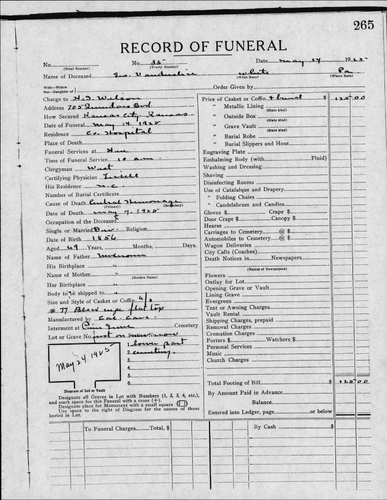 265
RECORD OF FUNERAL
No. 35 Date May 14 1925
(Total Number) (Yearly Number)
Name of Deceased Geo. White Pa.
Wife—Widow
Son—Daughter of Order Given by
Charge to H. T. Wilson
Address 705 Blvd
How Secured Kansas City, Kansas
Date of Funeral May 14 1925
Residence Co. Hospital
Place of Death
Funeral Services at Here
Time of Funeral Service 10 a.m.
Clergyman West
Certifying Physician
His Residence K.C.
Number of Burial Certificate
Cause of Death Cerebral Hemorrhage
(Primary) (Secondary)
Date of Death May 9, 1925
Occupation of the Deceased
Single or Married Religion
Date of Birth 1856
Aged 69 Years, Months, Days.
Name of Father Unknown
His Birthplace
Name of Mother "
(Maiden Name)
Her Birthplace
Body to be shipped to
Size and Style of Casket or Coffin
# 77 Black flat top
Manufactured by
Interment at Cemetery
Lot or Grave No.
part
cemetery.
May 24 1925
Diagram of Lot or Vault
Designate all Graves in Lot with Numbers (1, 2, 3, 4, etc.),
and mark space for this Funeral with a cross (+).
Designate place for Monument with a small square (□)
Use space to the right of Diagram for the names of those
buried in Lot.
Price of Casket or Coffin & burial $ 125.00
" Metallic Lining
(State kind)
" Outside Box
(State kind)
" Grave Vault
(State kind)
" Burial Robe
(State kind)
" Burial Slippers and Hose
Engraving Plate
Embalming Body (with Fluid)
Washing and Dressing
Shaving
Disinfecting Rooms
Use of Catafalque and Drapery
" Folding Chairs
" Candelabrum and Candles
Gloves $ Crape $
Door Crape $ Canopy $
Hearse
Carriages to Cemetery @
Automobiles to Cemetery @
Wagon Deliveries
City Calls (Coaches)
Death Notices in Newspapers
(Names of Newspapers)
Flowers
Outlay for Lot
Opening Grave or Vault
Lining Grave
Evergreen
Tent or Awning Charges
Vault Rental
Shipping Charges, prepaid
Removal Charges
Cremation Charges
Porters $ Watchers $
Personal Services
Music
Church Charges
Total Footing of Bill $ 125.00
By Amount Paid in Advance
Balance
Entered into Ledger, page or below
To Funeral Charges, Total $ By Cash $